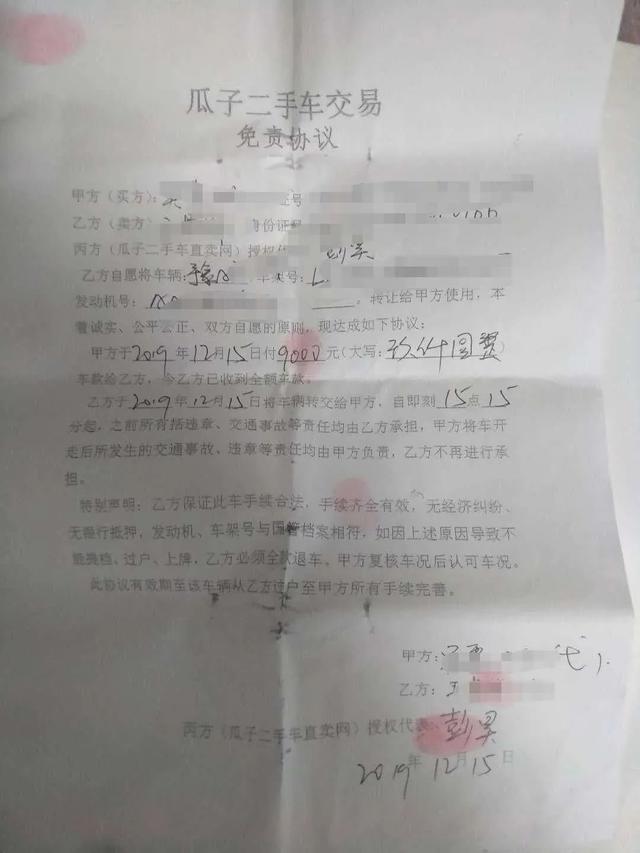 瓜子二手车交易
免责协议
甲方（买方）： 证号
乙方（卖方） 身份证号
丙方（瓜子二手车直卖网）授权代
乙方自愿将车辆： 车架号：L
发动机号： 。转让给甲方使用，本
着诚实、公平公正、双方自愿的原则，现达成如下协议：
甲方于2019年12月15日付9000元（大写：玖仟圆整）
车款给乙方，今乙方已收到全额车款。
乙方于2019年12月15日将车辆转交给甲方，自即刻15点15
分起，之前所有括违章、交通事故等责任均由乙方承担，甲方将车开
走后所发生的交通事故、违章等责任均由甲方负责，乙方不再进行承
担。
特别声明：乙方保证此车手续合法，手续齐全有效，无经济纠纷、
无银行抵押，发动机、车架号与国管档案相符，如因上述原因导致不
能提档、过户、上牌，乙方必须全款退车。甲方复核车况后认可车况。
此协议有效期至该车辆从乙方过户至甲方所有手续完善。
甲方：
乙方：
丙方（瓜子二手车直卖网）授权代表：彭昊
2019年12月15日